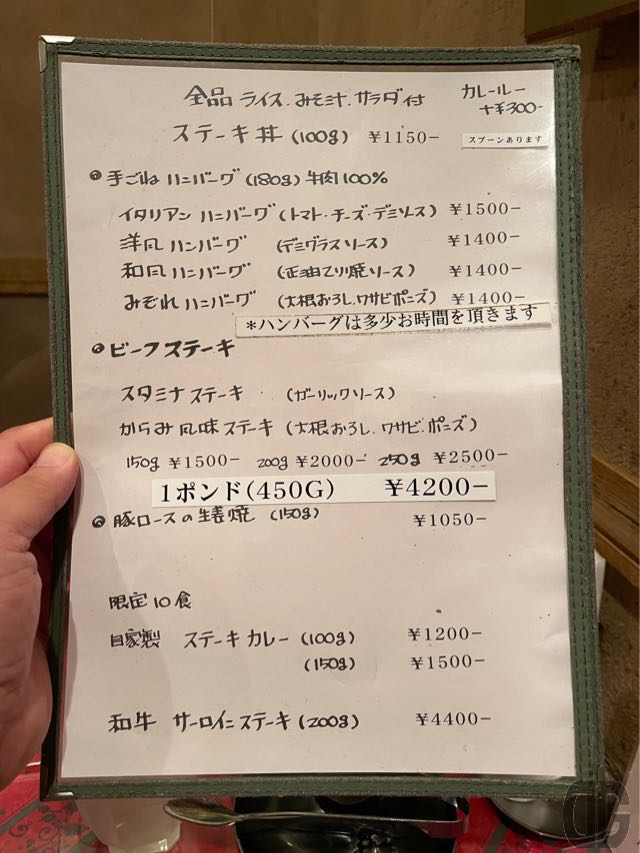 全品 ライス.みそ汁.サラダ付
カレールー
+¥300-
ステーキ丼 (100g) ¥1150-
スプーンあります
手ごねハンバーグ (180g) 牛肉100%
イタリアン ハンバーグ (トマト・チーズ・デミソース) ¥1500-
洋風ハンバーグ (デミグラスソース) ¥1400-
和風ハンバーグ (正油てり焼ソース) ¥1400-
みぞれハンバーグ (大根おろし.ワサビポン酢) ¥1400-
*ハンバーグは多少お時間を頂きます
ビーフステーキ
スタミナステーキ (ガーリックソース)
からみ風味ステーキ (大根おろし.ワサビ.ポン酢)
150g ¥1500- 200g ¥2000- 250g ¥2500-
1ポンド(450G) ¥4200-
豚ロースの生姜焼 (150g) ¥1050-
限定10食
自家製 ステーキカレー (100g) ¥1200-
(150g) ¥1500-
和牛 サーロインステーキ (200g) ¥4400-